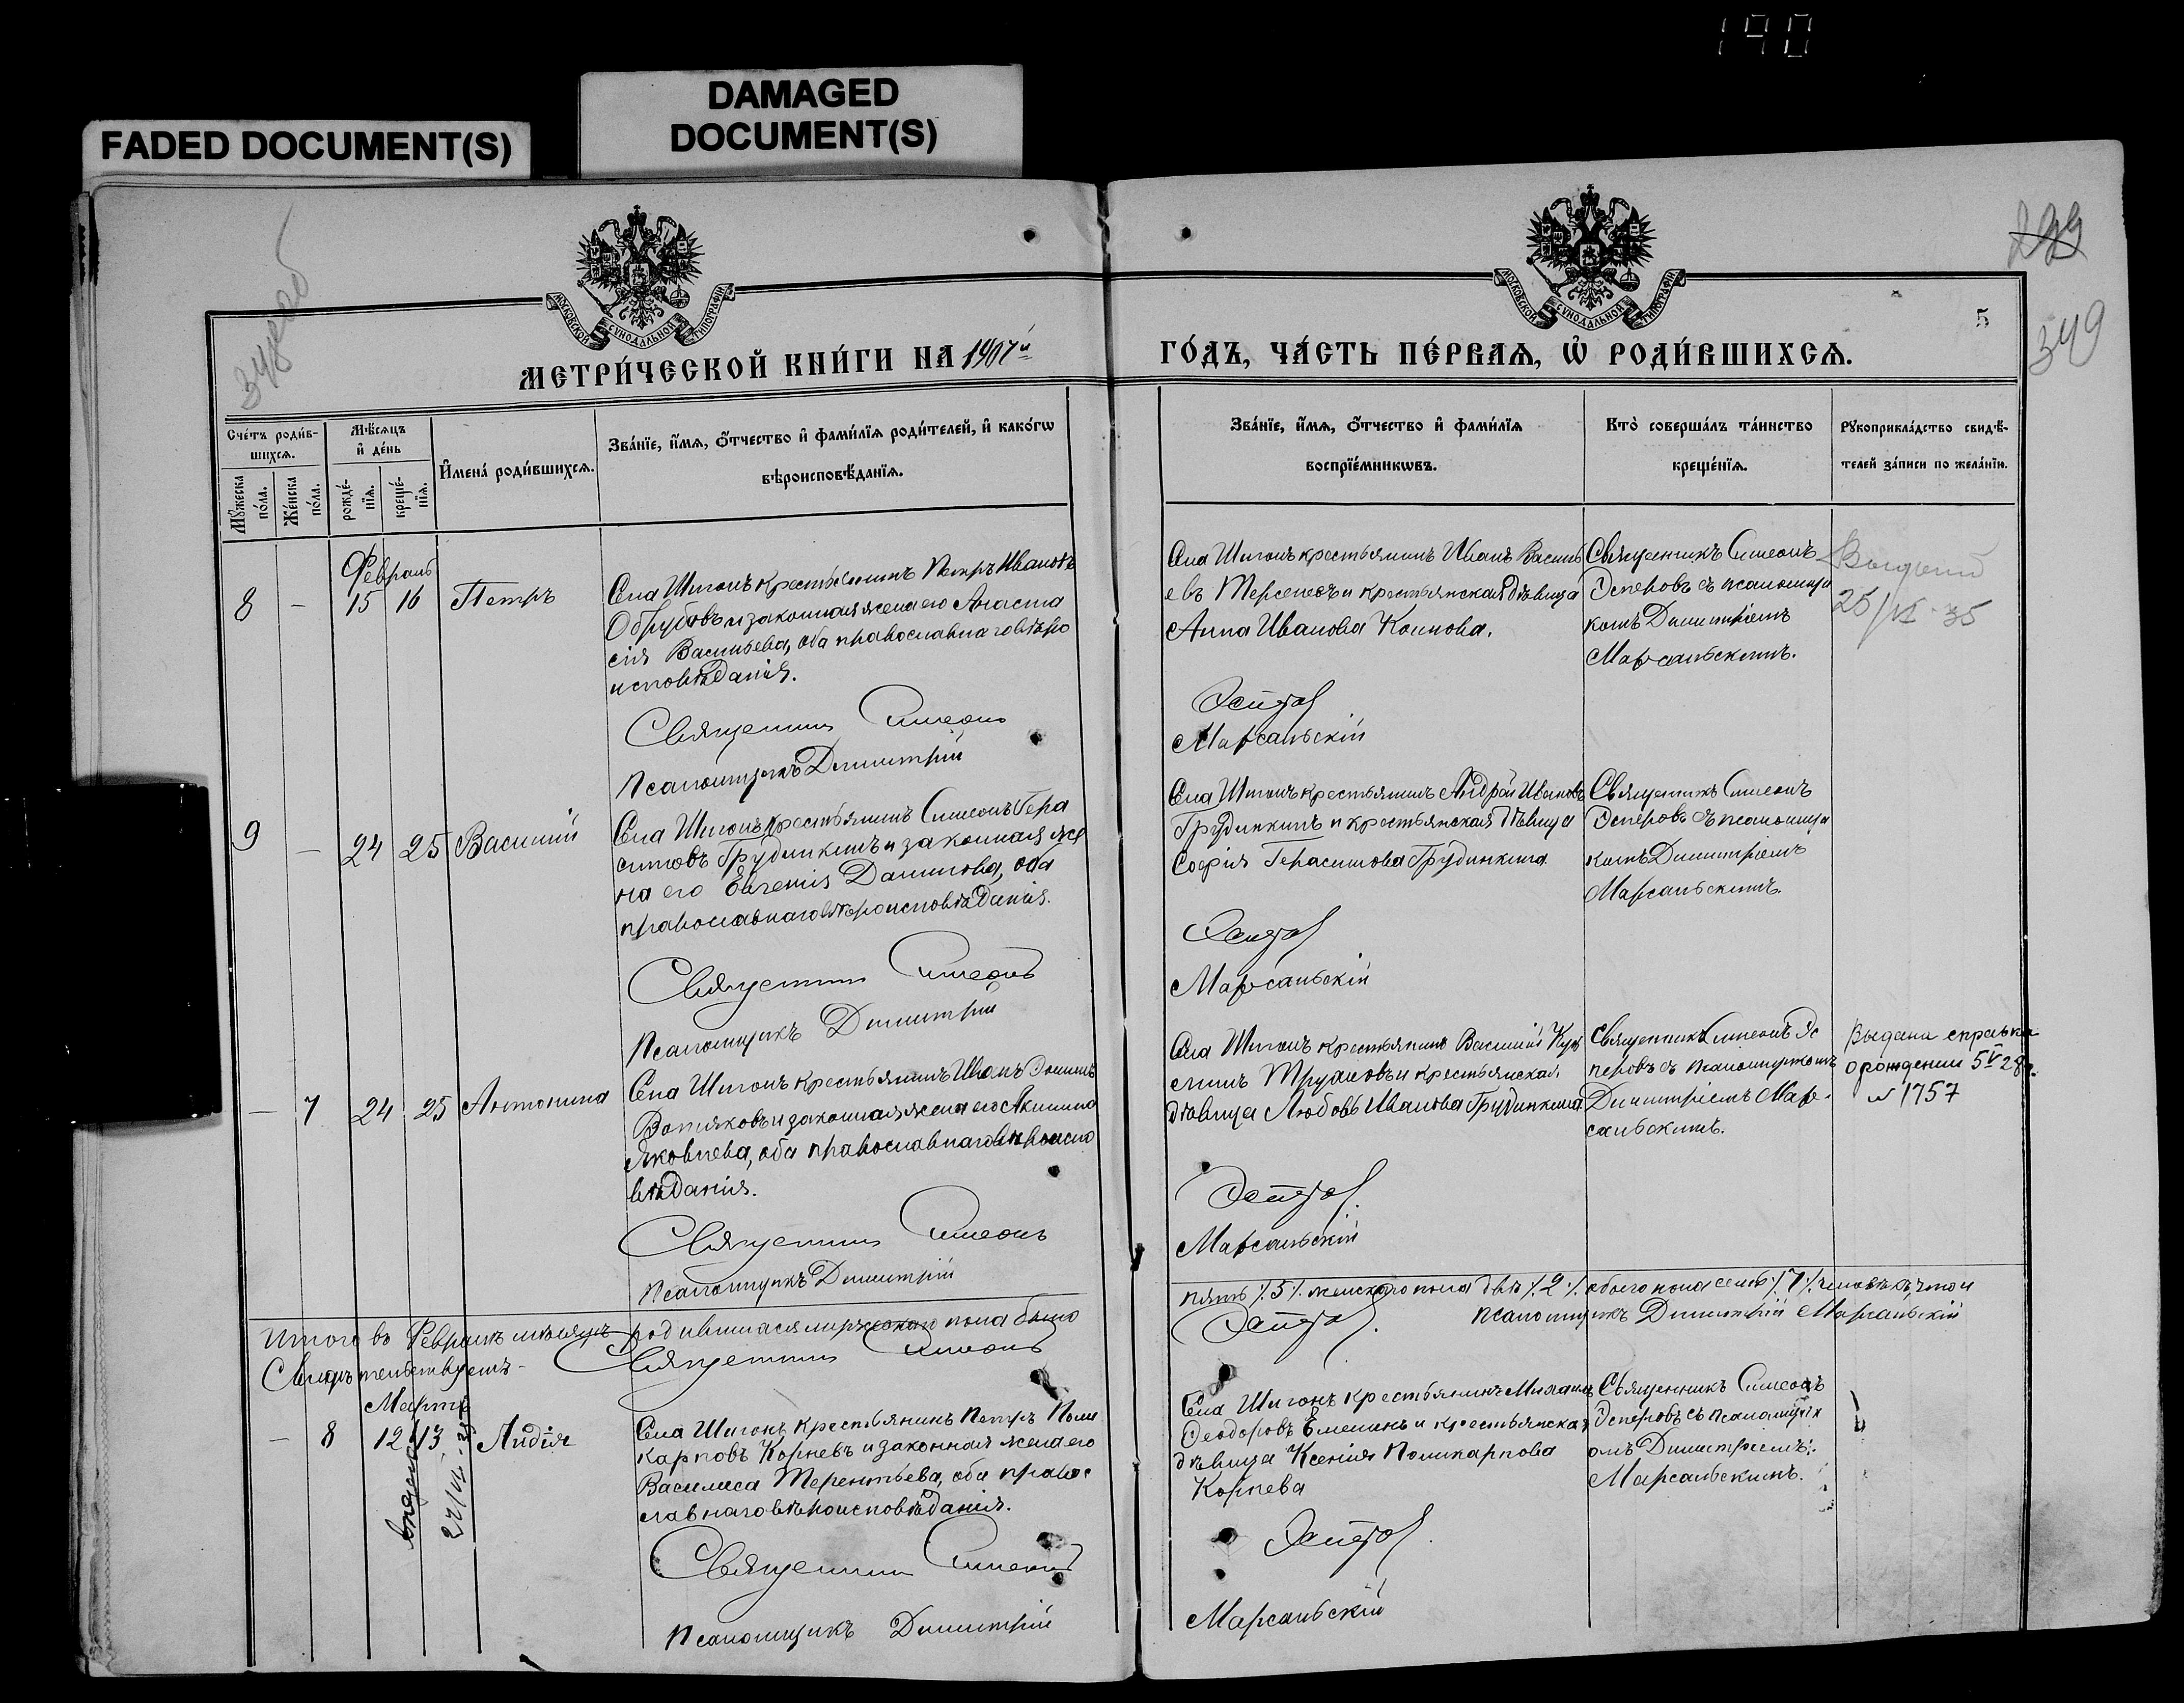 190
FADED DOCUMENT(S)
DAMAGED
DOCUMENT(S)
348 об
299
349
5
МОСКОВСКОЙ СУНОДАЛЬНОЙ ТИПОГРАФІИ
МОСКОВСКОЙ СУНОДАЛЬНОЙ ТИПОГРАФІИ
МЕТРИ́ЧЕСКОЙ КНИ́ГИ НА 1907й
ГО́ДЪ, ЧА́СТЬ ПЕ́РВАѦ, Ѡ҆ РОДИ́ВШИХСѦ.
Сче́тъ роди́в-
шихсѧ.
Мꙋ́жеска по́ла.
Же́нска по́ла.
Мѣ́сѧцъ
и҆ де́нь
рожде́-
нїѧ.
креще́-
нїѧ.
И҆мена̀ роди́вшихсѧ.
Зва́нїе, и҆́мѧ, ѻ҆́тчество и҆ фами́лїѧ роди́телей, и҆ како́гѡ
вѣроисповѣ́данїѧ.
Зва́нїе, и҆́мѧ, ѻ҆́тчество и҆ фами́лїѧ
воспрїе́мникѡвъ.
Кто̀ соверша́лъ та́инство
креще́нїѧ.
Рꙋкоприкла́дство свидѣ́-
телей за́писи по жела́нїю.
Февраль
8 — 15 16 Петръ
Села Шигонъ крестьянинъ Петръ Ивановъ
Обрубовъ и законная жена его Анаста
сія Васильева, оба православнаго вѣро
исповѣданія.
Священникъ Симеонъ
Псаломщикъ Димитрій
Села Шигонъ крестьянинъ Иванъ Василь
евъ и крестьянская дѣвица
Анна Иванова
Эсперовъ
Марсальскій
Священникъ Симеонъ
Эсперовъ съ псаломщи
комъ Димитріемъ
Марсальскимъ.
25/VI-35
9 — 24 25 Василій
Села Шигонъ крестьянинъ Симеонъ Гера
симовъ Грудинкинъ и законная же
на его Евгенія Данилова, оба
православнаго вѣроисповѣданія.
Священникъ Симеонъ
Псаломщикъ Димитрій
Села Шигонъ крестьянинъ Андрей Ивановъ
Грудинкинъ и крестьянская дѣвица
Софія Герасимова Грудинкина
Эсперовъ
Марсальскій
Священникъ Симеонъ
Эсперовъ съ псаломщи
комъ Димитріемъ
Марсальскимъ.
— 7 24 25 Антонина
Села Шигонъ крестьянинъ Иванъ
Вотяковъ и законная жена его Акилина
Яковлева, оба православнаго вѣроиспо
вѣданія.
Священникъ Симеонъ
Псаломщикъ Димитрій
Села Шигонъ крестьянинъ Василій Кузь
минъ и крестьянская
дѣвица Любовь Иванова Грудинкина
Эсперовъ.
Марсальскій
Священникъ Симеонъ Эс
перовъ съ псаломщикомъ
Димитріемъ Мар-
сальскимъ.
Выдана справка
о рождении 5 V 28 г.
№ 1757
Итого въ Февралѣ мѣсяцѣ родившихся мужескаго пола было
пять /5/ женскаго пола двѣ /2/ обоего пола семь /7/ человѣкъ, что и
Свидѣтельствуемъ — Священникъ Симеонъ
Эсперовъ. псаломщикъ Димитрій Марсальскій
Мартъ
— 8 12 13 Лидія
Села Шигонъ крестьянинъ Петръ Поли
карповъ Корневъ и законная жена его
Василиса Терентьева, оба правос
лавнаго вѣроисповѣданія.
Священникъ Симеонъ
Псаломщикъ Димитрій
Села Шигонъ крестьянинъ Михаилъ
Ѳеодоровъ Емелинъ и крестьянская
дѣвица Ксенія Поликарпова
Корнева
Эсперовъ.
Марсальскій
Священникъ Симеонъ
Эсперовъ съ псаломщик
омъ Димитріемъ
Марсальскимъ.